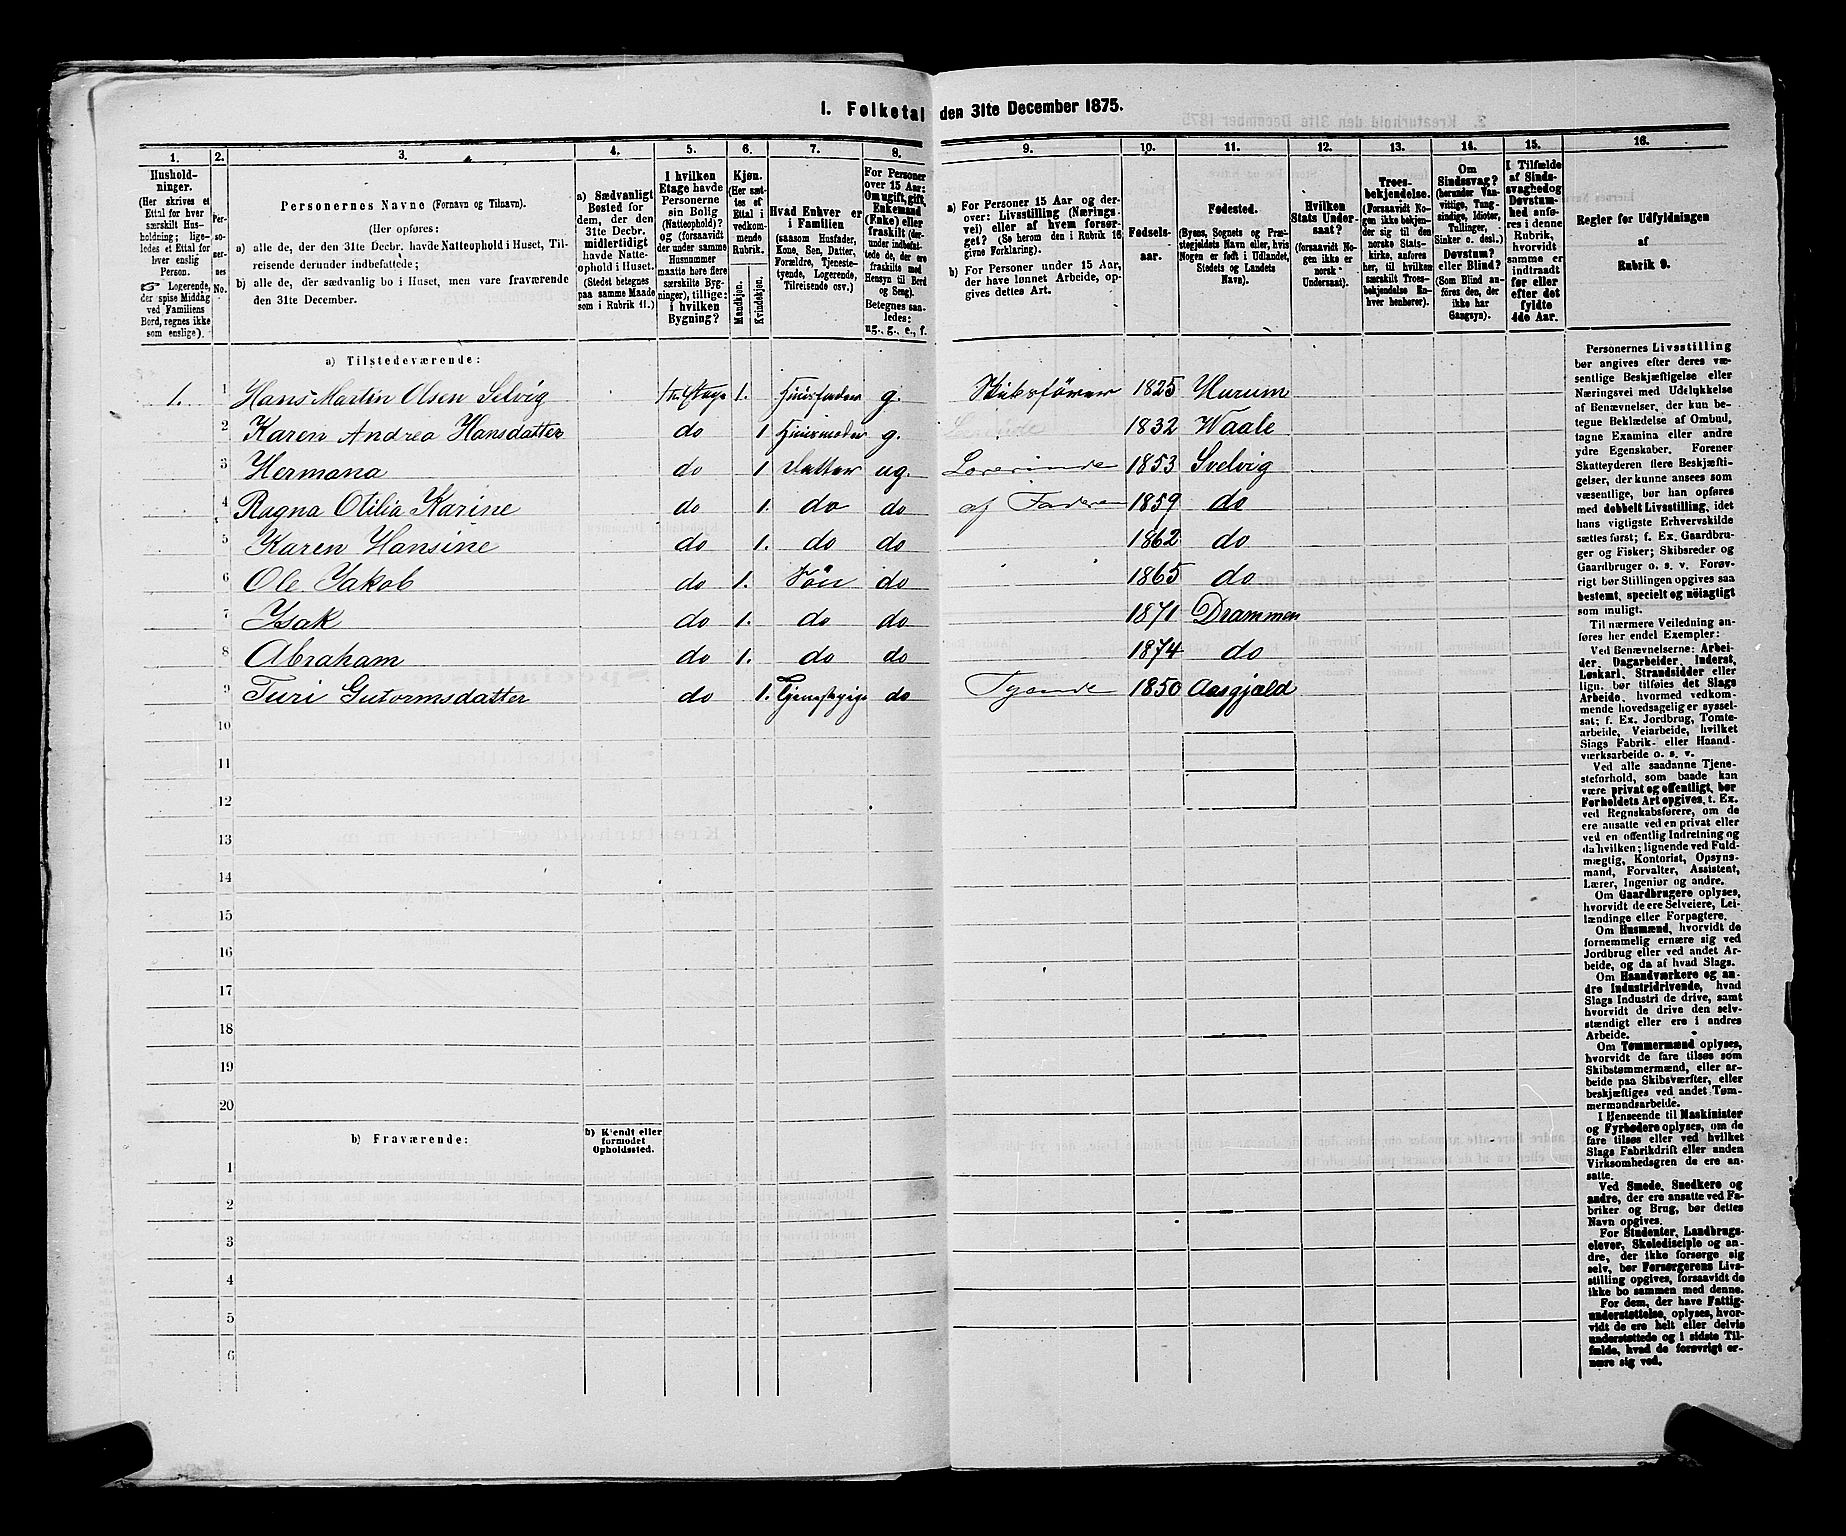 1. Folketal den 31te December 1875.
1. 2. 3. 4. 5. 6. 7. 8. 9. 10. 11. 12. 13. 14. 15. 16.
Hushold-
ninger.
(Her skrives et
Ettal for hver
særskilt Hus-
holdning; lige-
ledes et Ettal for
hver enslig
Person.
☞ Logerende,
der spise Middag
ved Familiens
Bord, regnes ikke
som enslige).
Per-
so-
ner-
nes
No.
Personernes Navne (Fornavn og Tilnavn).
(Her opføres:
a) alle de, der den 31te Decbr. havde Natteophold i Huset, Til-
reisende derunder indbefattede;
b) alle de, der sædvanlig bo i Huset, men vare fraværende
den 31te December.
a) Sædvanligt
Bosted for
dem, der den
31te Decbr.
midlertidigt
havde Natte-
ophold i Huset.
(Stedet betegnes
paa samme Maade
som i Rubrik 11.)
I hvilken
Etage havde
Personerne
sin Bolig
(Natteophold)?
og (forsaavidt
der under samme
Husnummer
maatte høre flere
særskilte Byg-
ninger), tillige:
i hvilken
Bygning?
Kjøn.
(Her sæt-
tes et
Ettal i
vedkom-
mende
Rubrik.
Mandkjøn.
Kvindekjøn.
Hvad Enhver er
i Familien
(saasom Husfader,
Kone, Søn, Datter,
Forældre, Tjeneste-
tyende, Logerende,
Tilreisende osv.)
For Personer
over 15 Aar:
Om ugift, gift,
Enkemand
(Enke) eller
fraskilt (der-
under indbefat-
tede de, der ere
fraskilte med
Hensyn til Bord
og Seng).
Betegnes saa-
ledes:
ug., g., e., f.
a) For Personer 15 Aar og der-
over: Livsstilling (Nærings-
vei) eller af hvem forsør-
get? (Se herom den i Rubrik 16
givne Forklaring).
b) For Personer under 15 Aar,
der have lønnet Arbeide, op-
gives dettes Art.
Fødsels-
aar.
Fødested.
(Byens, Sognets og Præ-
stegjeldets Navn eller, hvis
Nogen er født i Udlandet,
Stedets og Landets
Navn).
Hvilken
Stats Under-
saat?
(forsaavidt No-
gen ikke er
norsk
Undersaat).
Troes-
bekjendelse.
(Forsaavidt No-
gen ikke bekjen-
der sig til den
norske Stats-
kirke, anføres
her, til hvilken
særskilt Troes-
bekjendelse En-
hver henhører).
Om
Sindssvag?
(herunder Van-
vittige, Tung-
sindige, Idioter,
Tullinger,
Sinker o. desl.)
Døvstum?
eller Blind?
(Som Blind an-
føres den, der
ikke har
Gangsyn).
I Tilfælde
af Sinds-
svaghed og
Døvstum-
hed anfø-
res i denne
Rubrik,
hvorvidt
samme er
indtraadt
før eller
efter det
fyldte
4de Aar.
Regler for Udfyldningen
af
Rubrik 9.
a) Tilstedeværende:
1. 1 Hans Martin Olsen Selvig 1. Huusfader g. Skibsförer 1825 Hurum
2 Karen Andrea Hansdatter do 1 Huusmoder g. 1832 Waale
3 Hermana do 1 Datter ug. Lærerinde 1853 Svelvig
4 Ragna Otilia Karine do 1. do do af Faderen 1859 do
5 Karen Hansine do 1. do do 1862 do
6 Ole Jakob do 1. Sön do 1865 do
7 Isak do 1. do do 1871 Drammen
8 Abraham do 1. do do 1874 do
9 Turi Gutormsdatter do 1. do Tyende 1850 Aasgjæld
10
11
12
13
14
15
16
17
18
19
20
b) Fraværende:
b) Kjendt eller
formodet
Opholdssted.
1
2
3
4
5
6
Personernes Livsstilling
bør angives efter deres væ-
sentlige Beskjæftigelse eller
Næringsvei med Udelukkelse
af Benævnelser, der kun be-
tegne Beklædelse af Ombud,
tagne Examina eller andre
ydre Egenskaber. Forener
Skatteyderen flere Beskjæfti-
gelser, der kunne ansees som
væsentlige, bør han opføres
med dobbelt Livsstilling, idet
hans vigtigste Erhvervskilde
sættes først; f. Ex. Gaardbru-
ger og Fisker; Skibsreder og
Gaardbruger o. s. v. Forøv-
rigt bør Stillingen opgives saa
bestemt, specielt og nøiagtigt
som muligt.
Til nærmere Veiledning an-
føres her endel Exempler:
Ved Benævnelserne: Arbei-
der, Dagarbeider, Inderst,
Løskarl, Strandsidder eller
lign. bør tilføies det Slags
Arbeide, hvormed vedkom-
mende hovedsagelig er syssel-
sat; f. Ex. Jordbrug, Tomte-
arbeide, Veiarbeide, hvilket
Slags Fabrik- eller Haand-
værksarbeide o. s. v.
Ved alle saadanne Tjene-
steforhold, som baade kan
være privat og offentligt, bør
Forholdets Art opgives, t. Ex.
ved Regnskabsførere, om de
ere ansatte ved en privat eller
ved en offentlig Indretning og
da hvilken; lignende ved Fuld-
mægtig, Kontorist, Opsyns-
mand, Forvalter, Assistent,
Lærer, Ingeniør og andre.
Om Gaardbrugere oplyses,
hvorvidt de ere Selveiere, Lei-
lændinge eller Forpagtere.
Om Husmænd, hvorvidt de
fornemmelig ernære sig ved
Jordbrug eller ved andet Ar-
beide, og da af hvad Slags.
Om Haandværkere og an-
dre Industridrivende, hvad
Slags Industri de drive, samt
hvorvidt de drive den selv-
stændigt eller ere i andres
Arbeide.
Om Tømmermænd oplyses,
hvorvidt de fare tilsøs som
Skibstømmermænd, eller ar-
beide paa Skibsværfter, eller
beskjæftiges ved andet Tøm-
mermandsarbeide.
I Henseende til Maskinister
og Fyrbødere oplyses, om de
fare tilsøs eller ved hvilket
Slags Fabrikdrift eller anden
Virksomhedsgren de ere an-
satte.
Ved Smede, Snedkere og
andre, der ere ansatte ved Fa-
briker og Brug, bør dettes
Navn opgives.
For Studenter, Landbrugs-
elever, Skoledisciple og an-
dre, der ikke forsørge sig
selv, bør Forsørgerens Livs-
stilling opgives, forsaavidt de
ikke bo sammen med denne.
For dem, der have Fattig-
understøttelse, oplyses, hvor-
vidt de ere helt eller delvis
understøttede og i sidste Til-
fælde, hvad de forøvrigt er-
nære sig ved.